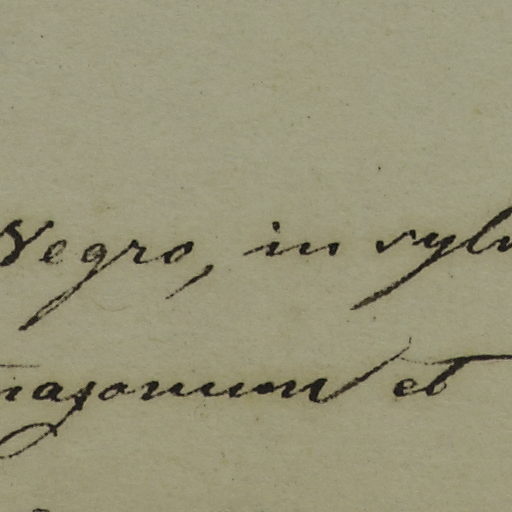 Negro, in sylv
mazonum et